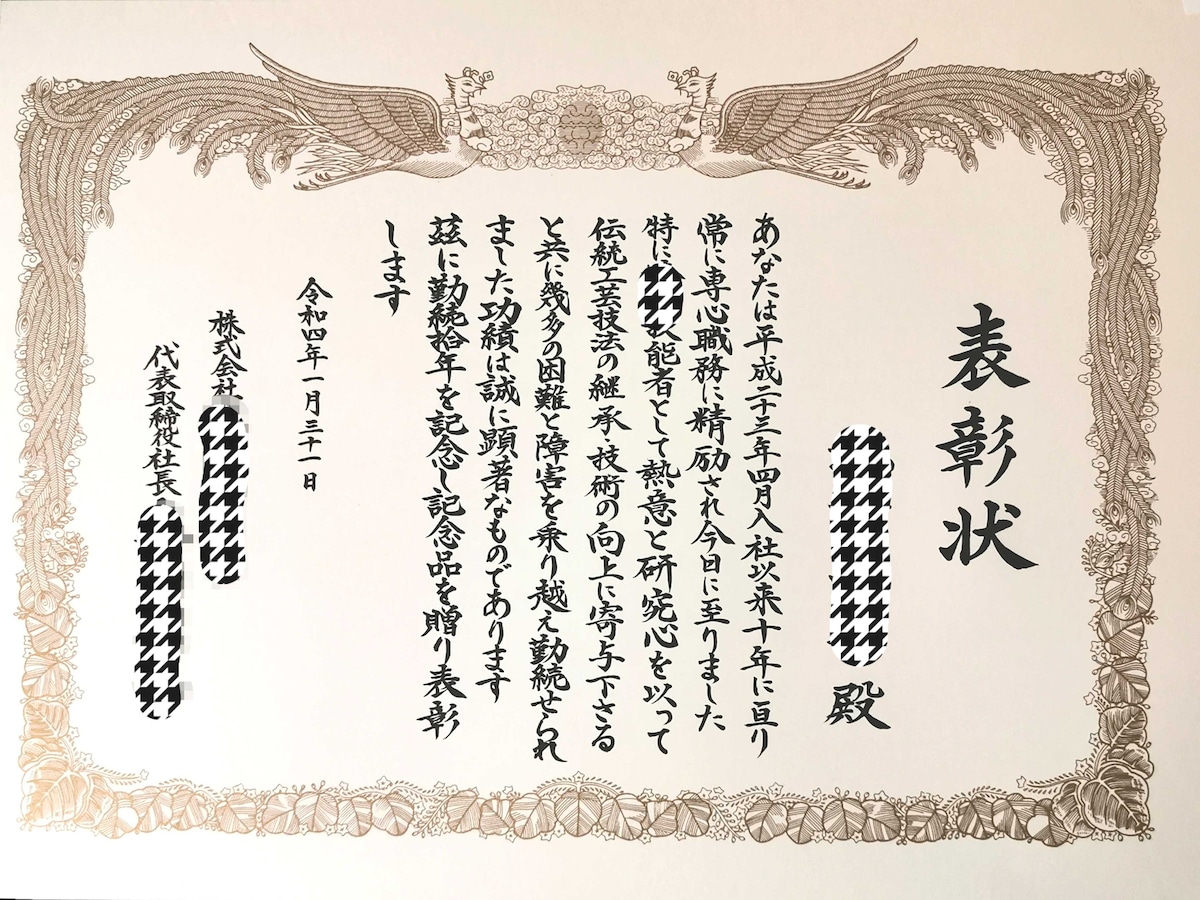 表彰状
殿
あなたは平成二十三年四月入社以来十年に亘り
常に専心職務に精励され今日に至りました
特に 能者として熱意と研究心を以って
伝統工芸技法の継承・技術の向上に寄与下さる
と共に幾多の困難と障害を乗り越え勤続せられ
ました功績は誠に顕著なものであります
茲に勤続拾年を記念し記念品を贈り表彰
します
令和四年一月三十一日
株式会社
代表取締役社長